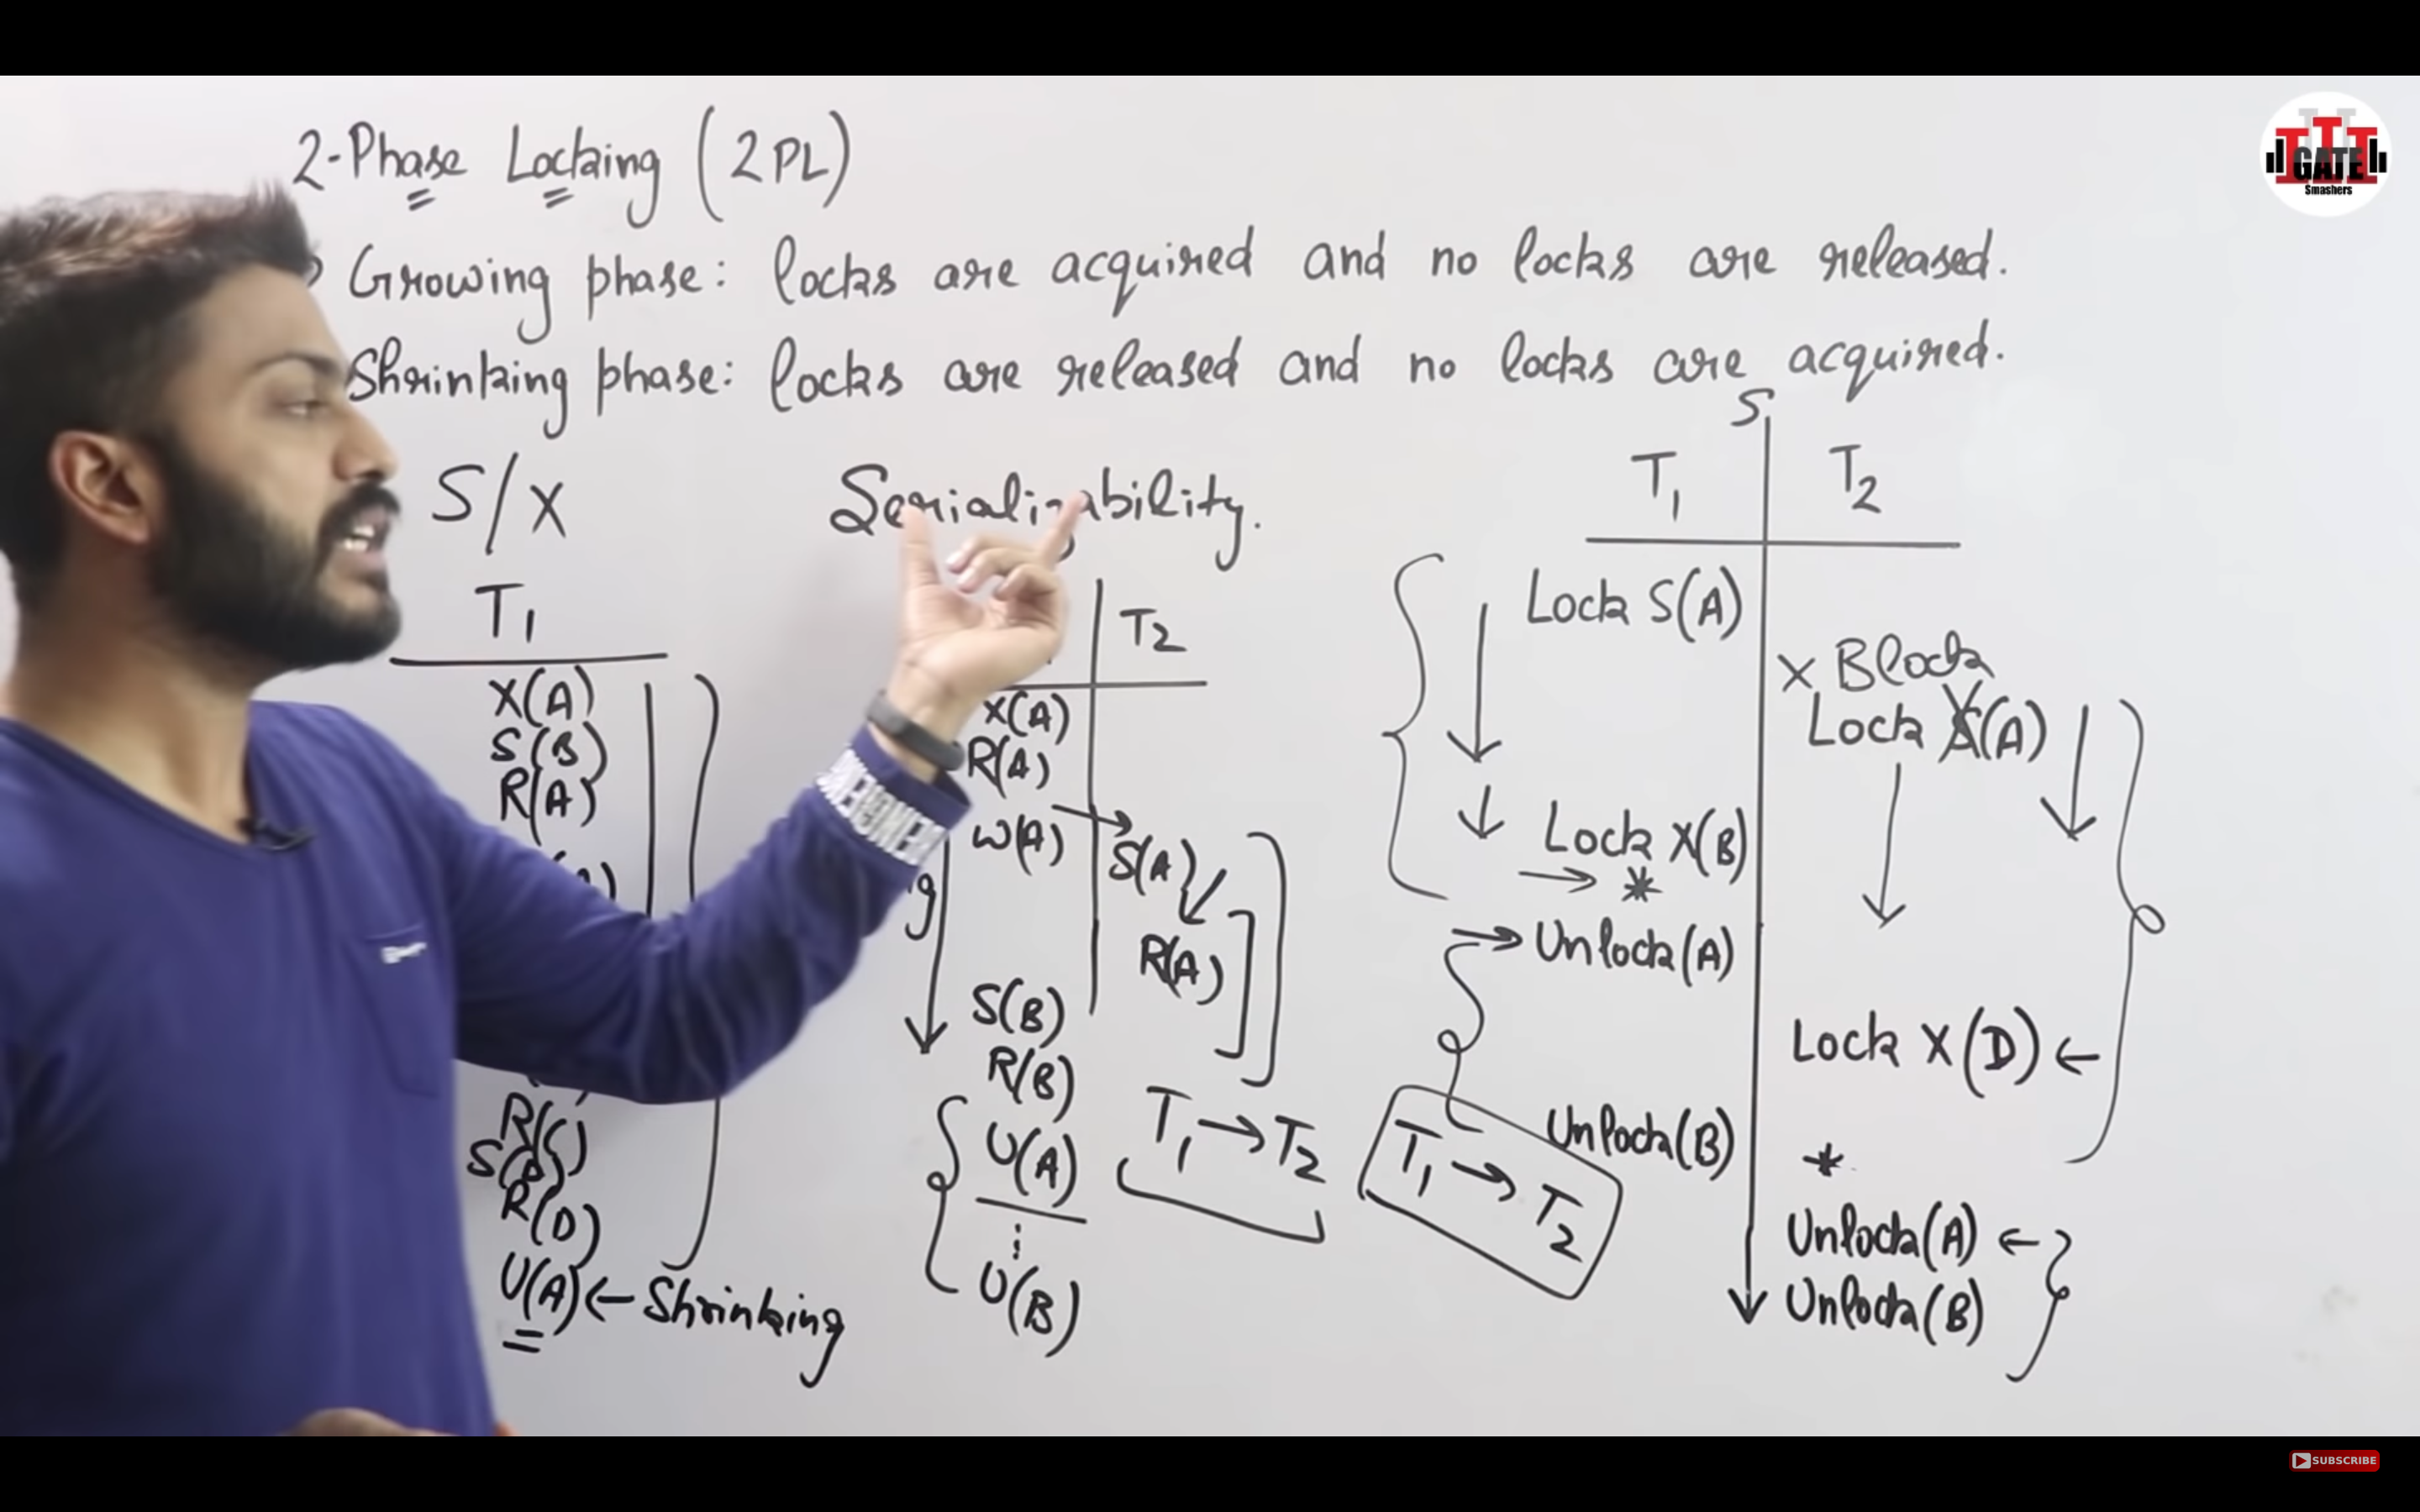 2-Phase Locking (2PL)
Growing phase: locks are acquired and no locks are released.
Shrinking phase: locks are released and no locks are acquired.
S/X
T1
X(A)
S(B)
R(A)
R(C)
S(D)
R(D)
U(A) ← Shrinking
Serializability.
T2
X(A)
R(A)
W(A)
S(A)
R(A)
S(B)
R(B)
U(A)
⋮
U(B)
T1 → T2
S
T1 T2
Lock S(A)
X Block
Lock X(A)
Lock X(B)
→ *
→ Unlock(A)
Lock X(D) ←
Unlock(B)
*
Unlock(A) ←
Unlock(B)
T1 → T2
GATE
Smashers
SUBSCRIBE